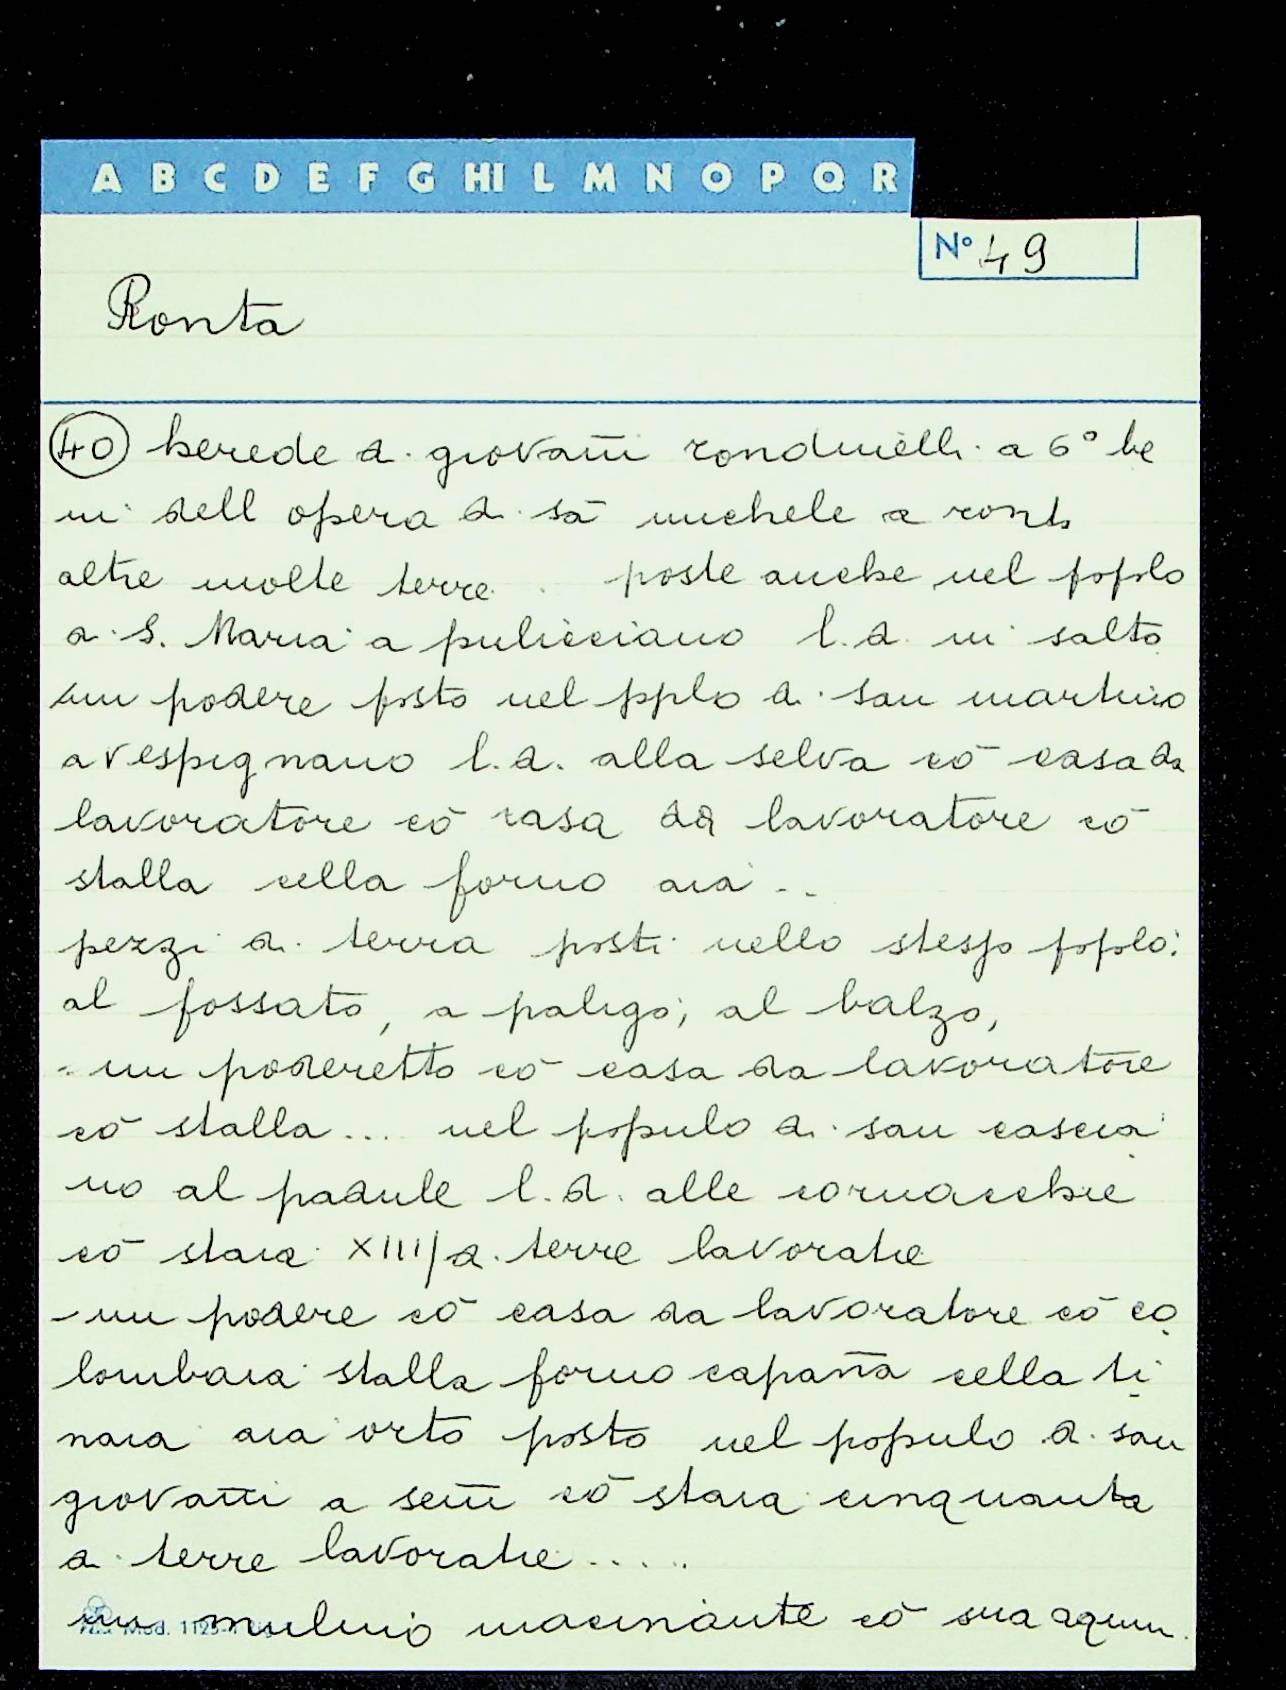 A B C D E F G HI L M N O P Q R
N° 49
Ronta
40 herede di giovañi rondinelli a 6° be
ni dell opera di sã michele a ronta
altre molte terre . poste anche nel popolo
di S. Maria a puliciano l.d. in salto
un podere posto nel pplo di san martino
a vespignano l.d. alla selva cõ casa da
lavoratore cõ casa da lavoratore cõ
stalla cella forno aia ..
pezzi di terra posti nello stesso popolo:
al fossato, a paligo; al balzo,
- un poderetto cõ casa da lavoratore
cõ stalla ... nel populo di san cascia
no al padule l.d. alle cornacchie
cõ staia XIII/ di terre lavoratie
- un podere cõ casa da lavoratore cõ co
lombaia stalla forno capaña cella ti
naia aia orto posto nel populo di san
giovañi a señi cõ staia cinquanta
di terre lavoratie .....
un mulino macinante cõ sua
Mod. 1125